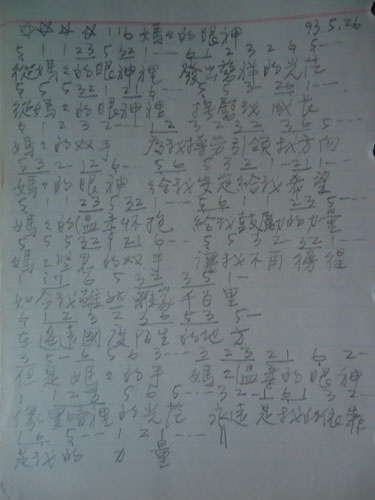 116 媽媽的眼神 93.5.26
5 1 1 23 5 32 1--- 6 1 2 3 2 6 5---
從媽媽的眼神裡 發出慈祥的光茫
5 5 5 32 1 21 6--- 5 5 3 2 61---
從媽媽的眼神裡 撫慰我成長
5 1 2 3 2--- 1 2 3 2 32 3 6 5---
媽媽的双手 為我撐着引領我方向
5 3 2-- 1 2 6--- 5 6 5 3 2 1--21 1---
媽媽的眼神 給我安定給我希望
5 1 1 23 5 32 1--- 5 6 1 2 3 5---
媽媽的溫柔怀抱 給我鼓勵的力量
5 5 5 32 1 21 6--- 5 5 3 2--32 1---
媽媽堅忍的双手 讓我不再徬徨
如今我離的離家千百里
5 1 2 3 2 3 6 5 3 5--
在遙遠國度陌生的地方
3 5-- 6 5 6 3--- 2 2 3 2 1 6 2--
但是媽媽的手 媽媽溫柔的眼神
1 1 2 3 5 6 5--- 3 2-- 1 6 1 3 2--
像黑暗裡的光茫 永遠是我的依靠
1 6 5--- 1 2 1---
是我的 力量